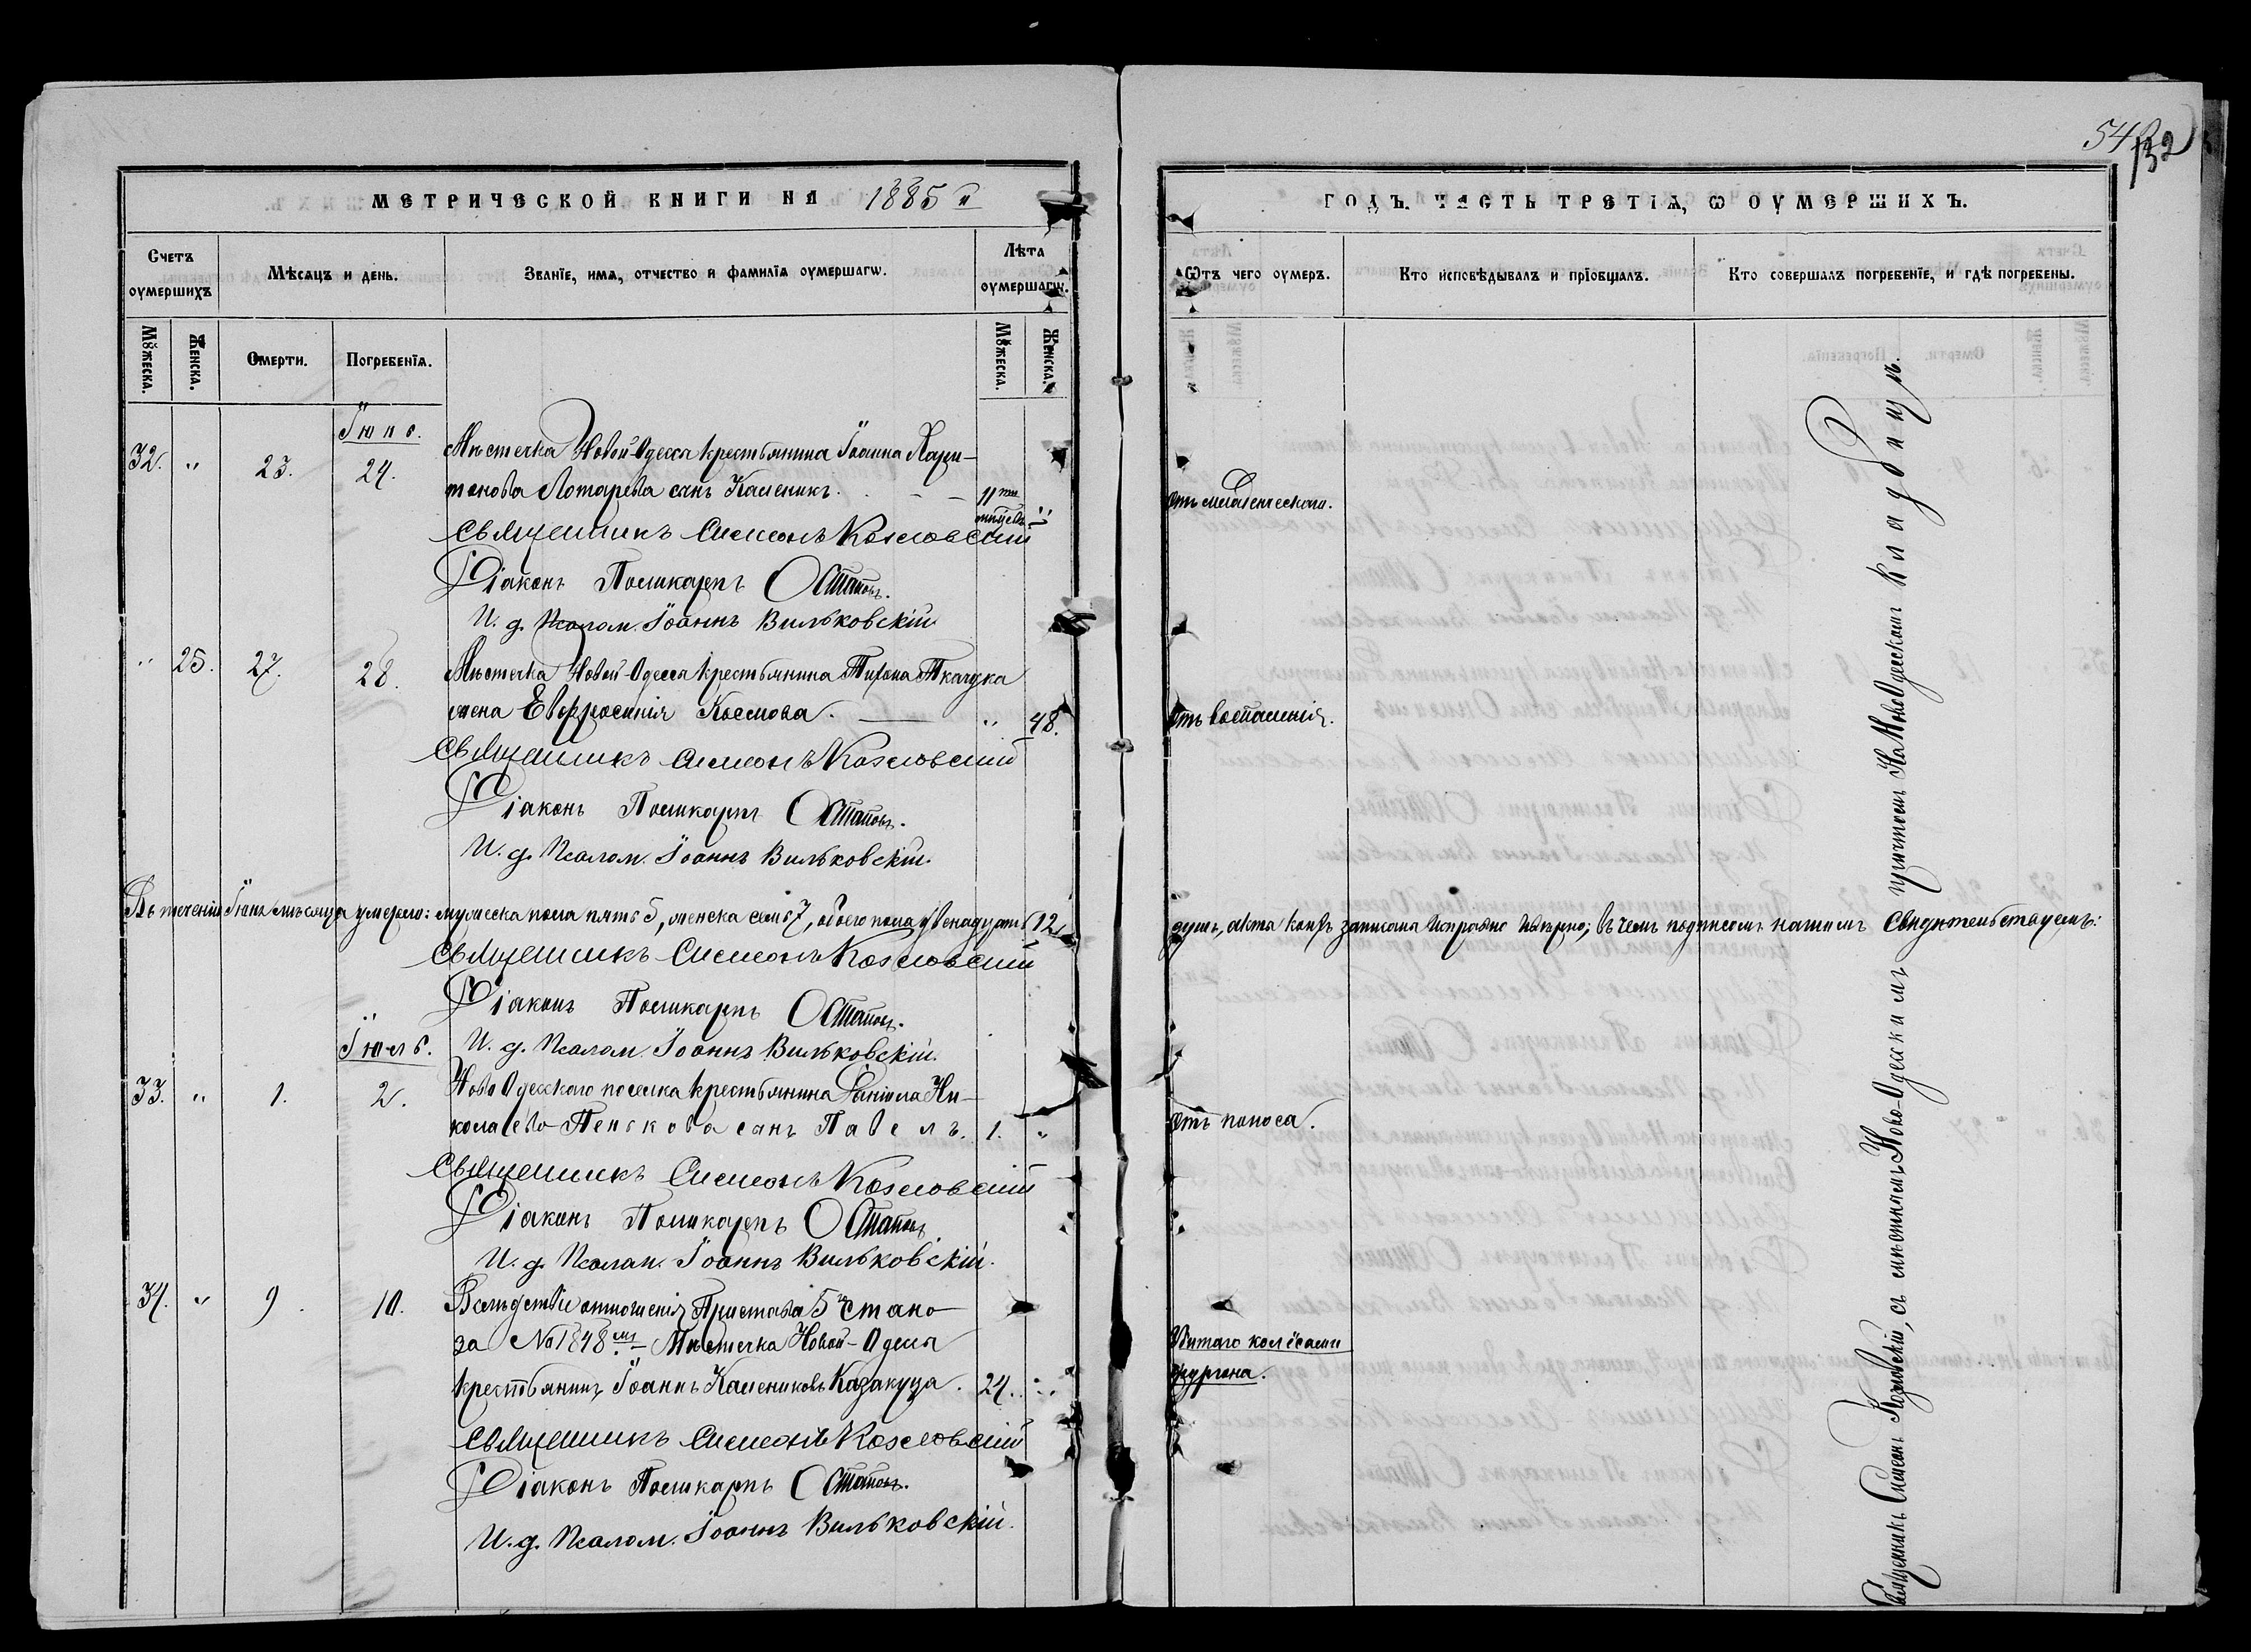 54
132
МЕТРИЧЕСКОЙ КНИГИ НА 1885 й
ГОДЪ. ЧАСТЬ ТРЕТІЯ, Ѡ ОУМЕРШИХЪ.
Счетъ оумершихъ
Мѣсяцъ и день.
Званїе, имя, отчество и фамилїя оумершагѡ.
Лѣта оумершагѡ.
Ѿтъ чего оумеръ.
Кто исповѣдывалъ и прїобщалъ.
Кто совершалъ погребенїе, и гдѣ погребены.
Мꙋжеска.
Женска.
Смерти.
Погребенїя.
Мꙋжеска.
Женска.
Іюнь.
32. " 23. 24. Мѣстечка Новой-Одессы крестьянина Іоанна Хари-
тонова Лотарева сынъ Каленикъ. 11ти " отъ младенческаго.
Священникъ Симеонъ Козловскій
Діаконъ Поликарпъ Остаповъ.
И. д. Псалом. Іоаннъ Вильковскій
" 25. 27. 28. Мѣстечка Новой-Одессы крестьянина Тихона Ткачука
жена Евфросинія Козмова. " 48. Отъ воспаленія.
Священникъ Симеонъ Козловскій
Діаконъ Поликарпъ Остаповъ.
И. д. Псалом. Іоаннъ Вильковскій.
Въ теченіи Іюня мѣсяца умерло: мужеска пола пять 5, женска семь 7, обоего пола двенадцать (12) душъ, акты коихъ записаны исправно и вѣрно; въ чемъ подписомъ нашимъ свидѣтельствуемъ:
Священникъ Симеонъ Козловскій
Діаконъ Поликарпъ Остаповъ.
И. д. Псалом. Іоаннъ Вильковскій.
Іюль.
33. " 1. 2. Ново Одесскаго поселка крестьянина Даніила Ни-
колаева Пенькова сынъ Павелъ. 1. " Отъ поноса.
Священникъ Симеонъ Козловскій
Діаконъ Поликарпъ Остаповъ.
И. д. Псалом. Іоаннъ Вильковскій.
34. " 9. 10. Вслѣдствіе отношенія Пристава 5го Стано
за № 1848мъ Мѣстечка Новой-Одессы
крестьянинъ Іоаннъ Калениковъ Казакуца. 24. "
Убитаго колёсами
фургона.
Священникъ Симеонъ Козловскій
Діаконъ Поликарпъ Остаповъ.
И. д. Псалом. Іоаннъ Вильковскій.
Священникъ Симеонъ Козловскій, съ мѣстнымъ Ново-Одесскимъ причтомъ На Ново Одесскомъ кладбищѣ.